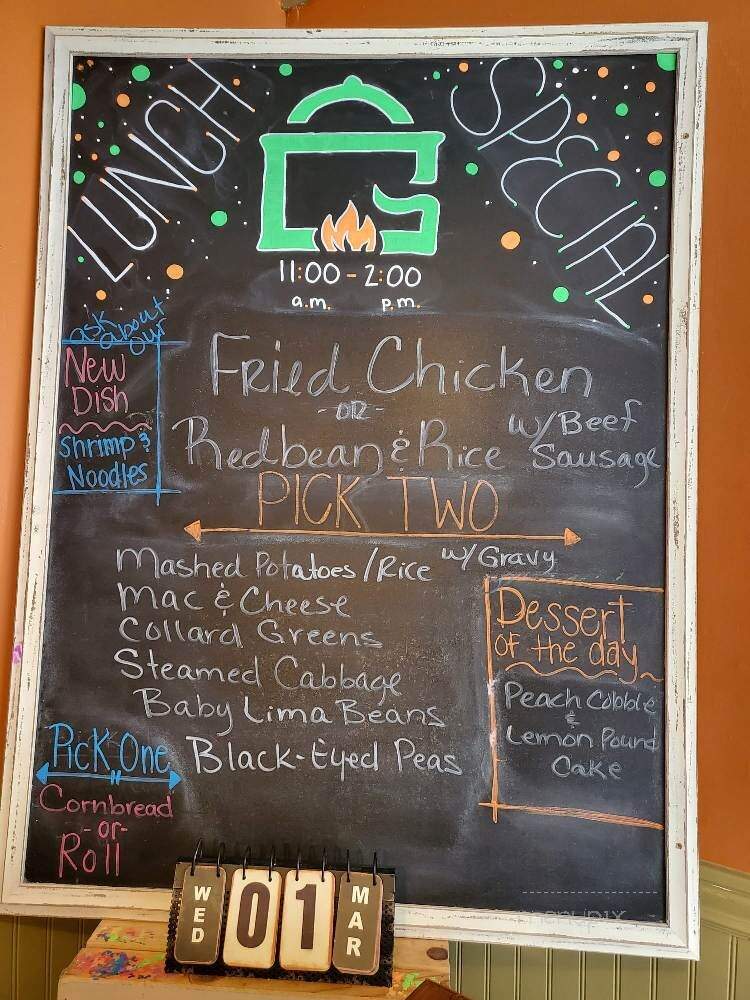 LUNCH SPECIAL
11:00 - 2:00
a.m. p.m.
ask about
our
New
Dish
Shrimp &
Noodles
Fried Chicken
-OR-
Redbean & Rice w/Beef
Sausage
PICK TWO
Mashed Potatoes/Rice w/Gravy
Mac & Cheese
Collard Greens
Steamed Cabbage
Baby Lima Beans
Black-Eyed Peas
Dessert
of the day
Peach Cobble
&
Lemon Pound
Cake
Pick One
Cornbread
-or-
Roll
WED 01 MAR
menupix